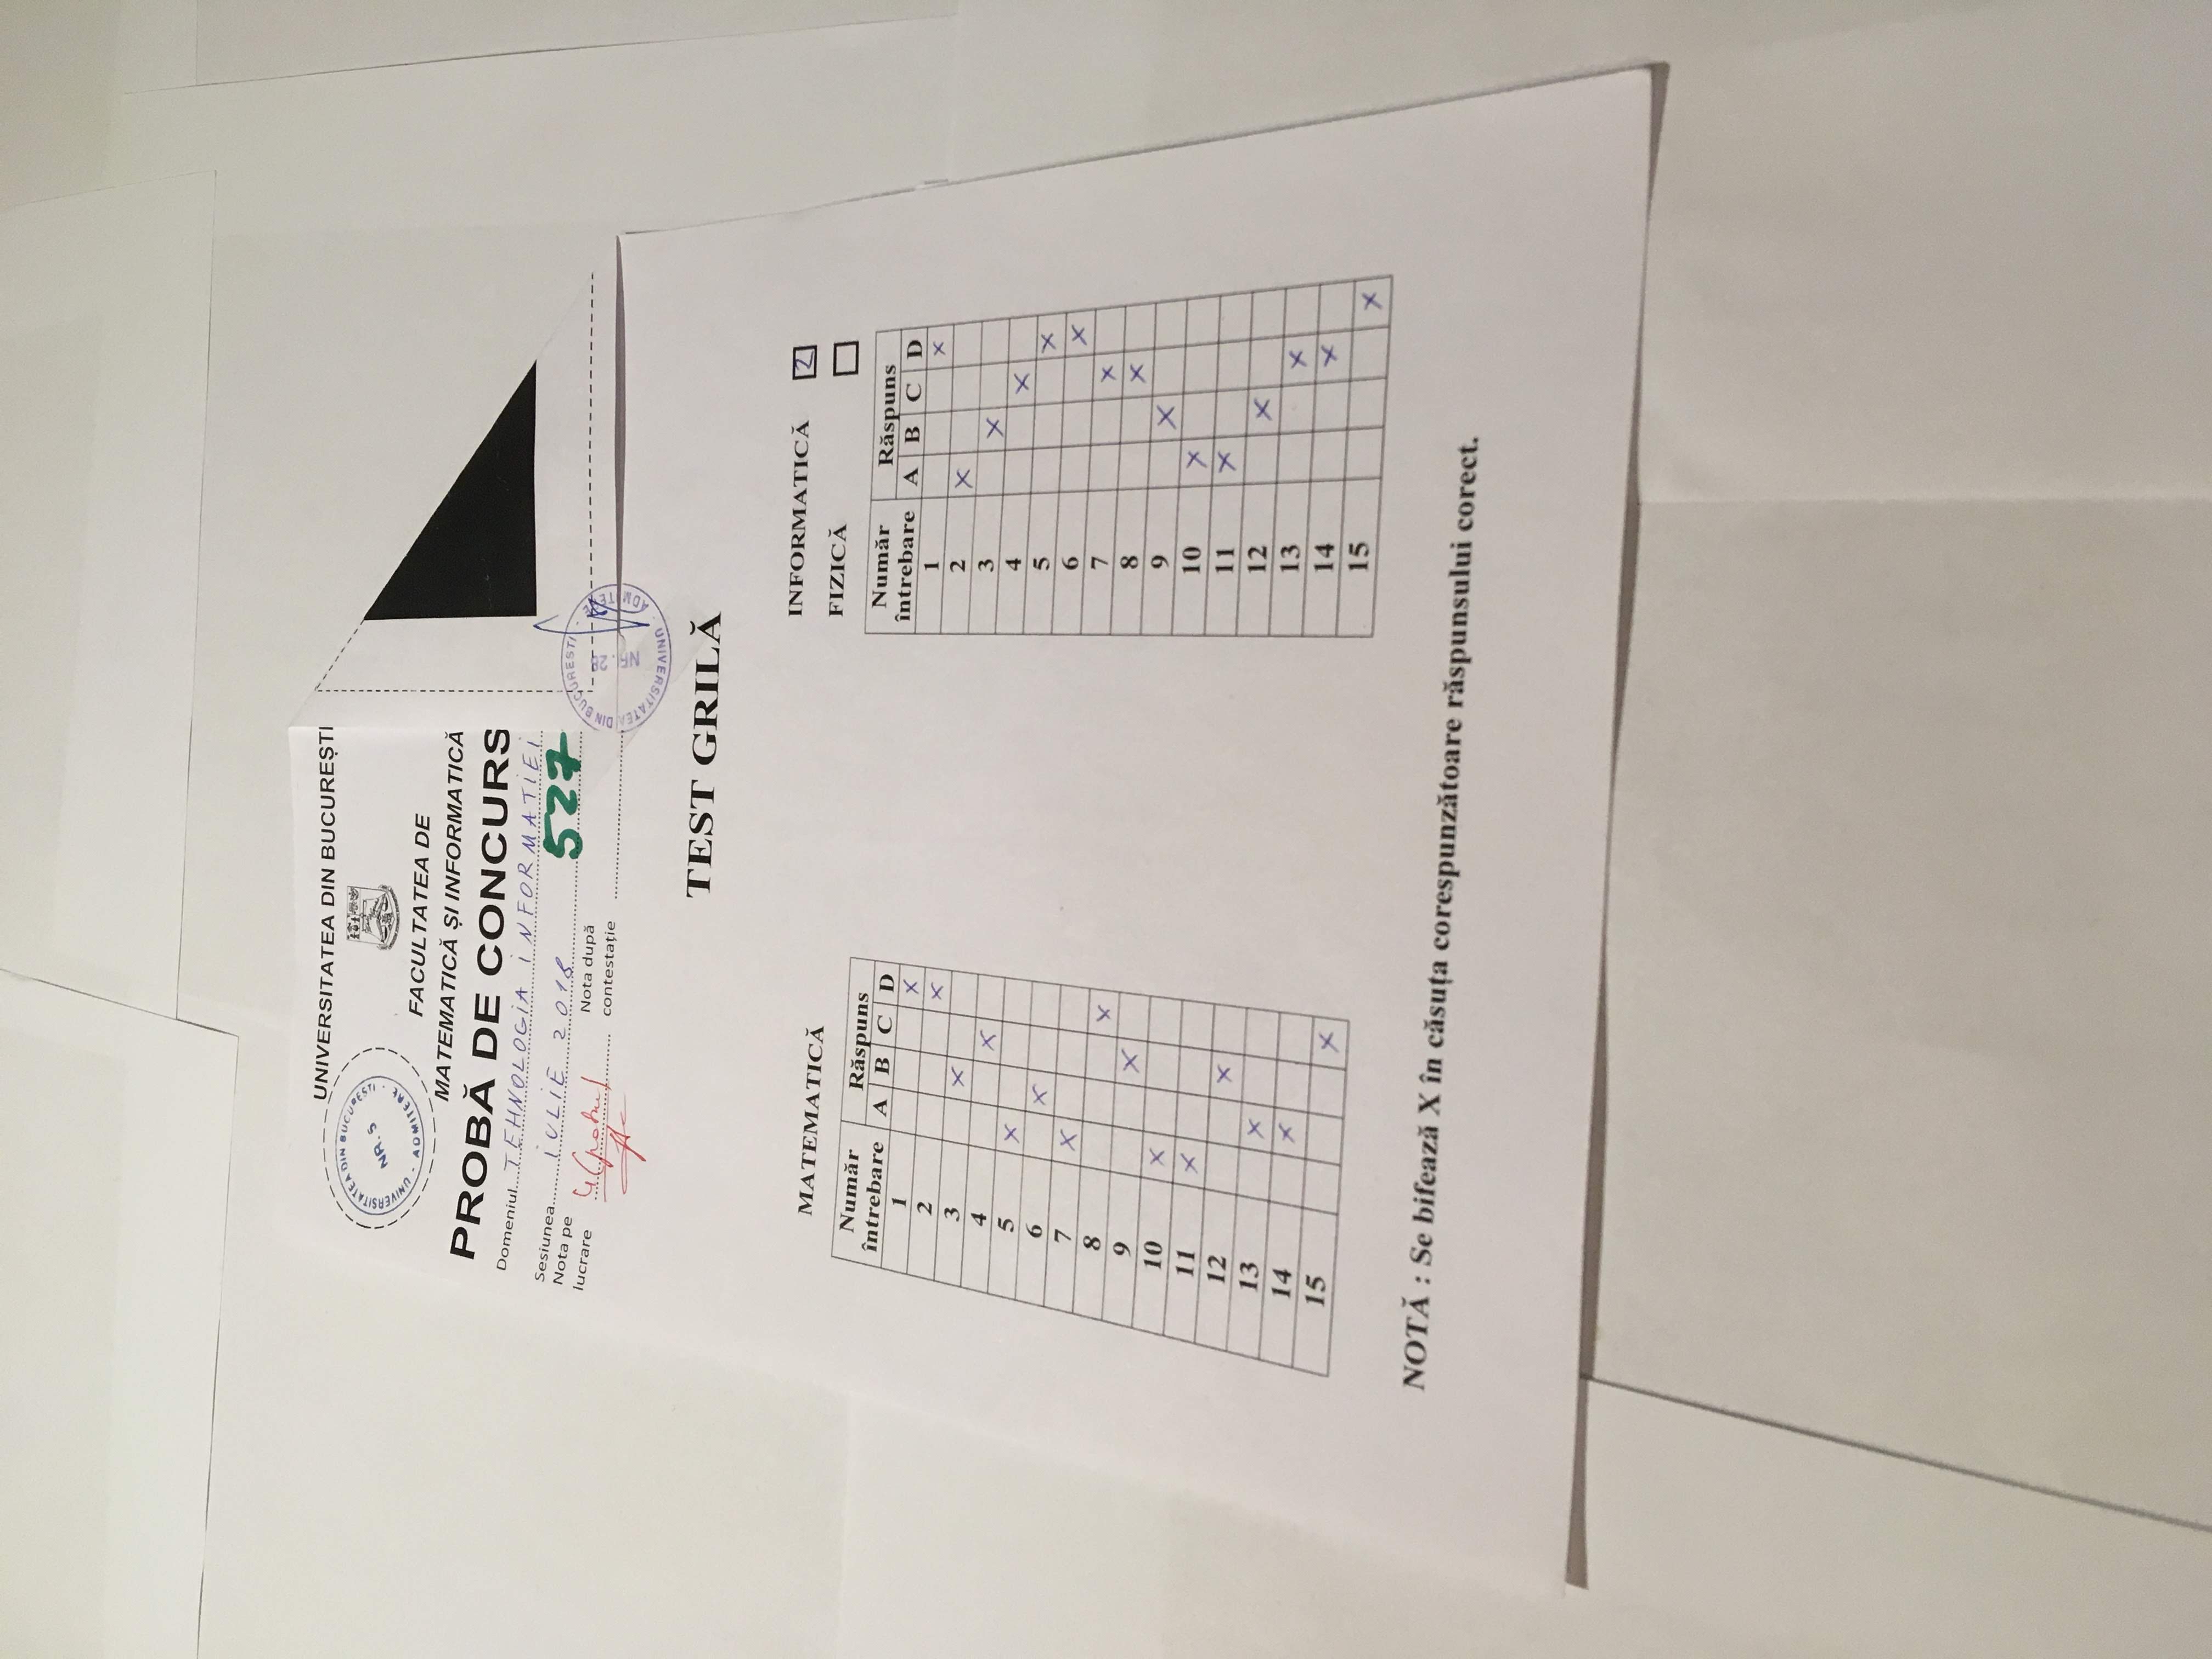 UNIVERSITATEA DIN BUCUREȘTI
UNIVERSITATEA DIN BUCUREȘTI - ADMITERE -
NR. 5
FACULTATEA DE
MATEMATICĂ ȘI INFORMATICĂ
PROBĂ DE CONCURS
Domeniul TEHNOLOGIA INFORMATIEI
Sesiunea IULIE 2018
527
Nota pe lucrare 4 (patru)
Nota după contestație
UNIVERSITATEA DIN BUCURESTI - ADMITERE -
NR. 28
TEST GRILĂ
MATEMATICĂ
Număr întrebare Răspuns
A B C D
1 X
2 X
3 X
4 X
5 X
6 X
7 X
8 X
9 X
10 X
11 X
12 X
13 X
14 X
15 X
INFORMATICĂ 2
FIZICĂ
Număr întrebare Răspuns
A B C D
1 X
2 X
3 X
4 X
5 X
6 X
7 X
8 X
9 X
10 X
11 X
12 X
13 X
14 X
15 X
NOTĂ : Se bifează X în căsuța corespunzătoare răspunsului corect.